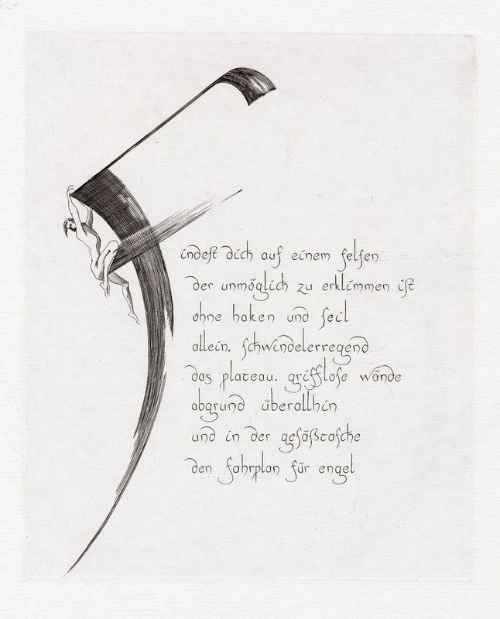 Findeſt dich auf einem felſen
der unmöglich zu erklimmen iſt
ohne haken und ſeil
allein. ſchwindelerregend
das plateau. griffloſe wände
abgrund überallhin
und in der geſäßtaſche
den fahrplan für engel